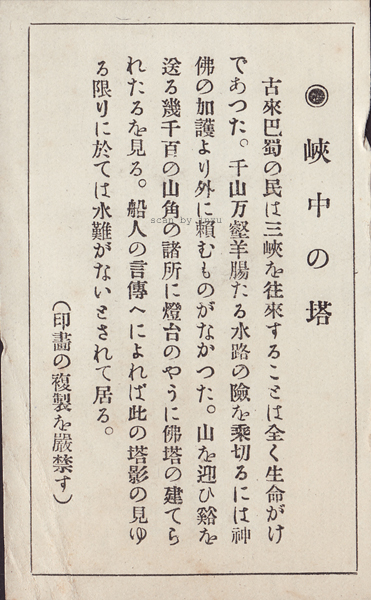 ◉ 峽中の塔
古來巴蜀の民は三峽を往來することは全く生命がけ
であつた。千山万壑羊腸たる水路の險を乘切るには神
佛の加護より外に賴むものがなかつた。山を迎ひ谿を
送る幾千百の山角の諸所に燈台のやうに佛塔の建てら
れたるを見る。船人の言傳へによれば此の塔影の見ゆ
る限りに於ては水難がないとされて居る。
（印畫の複製を嚴禁す）
scan by jinxu